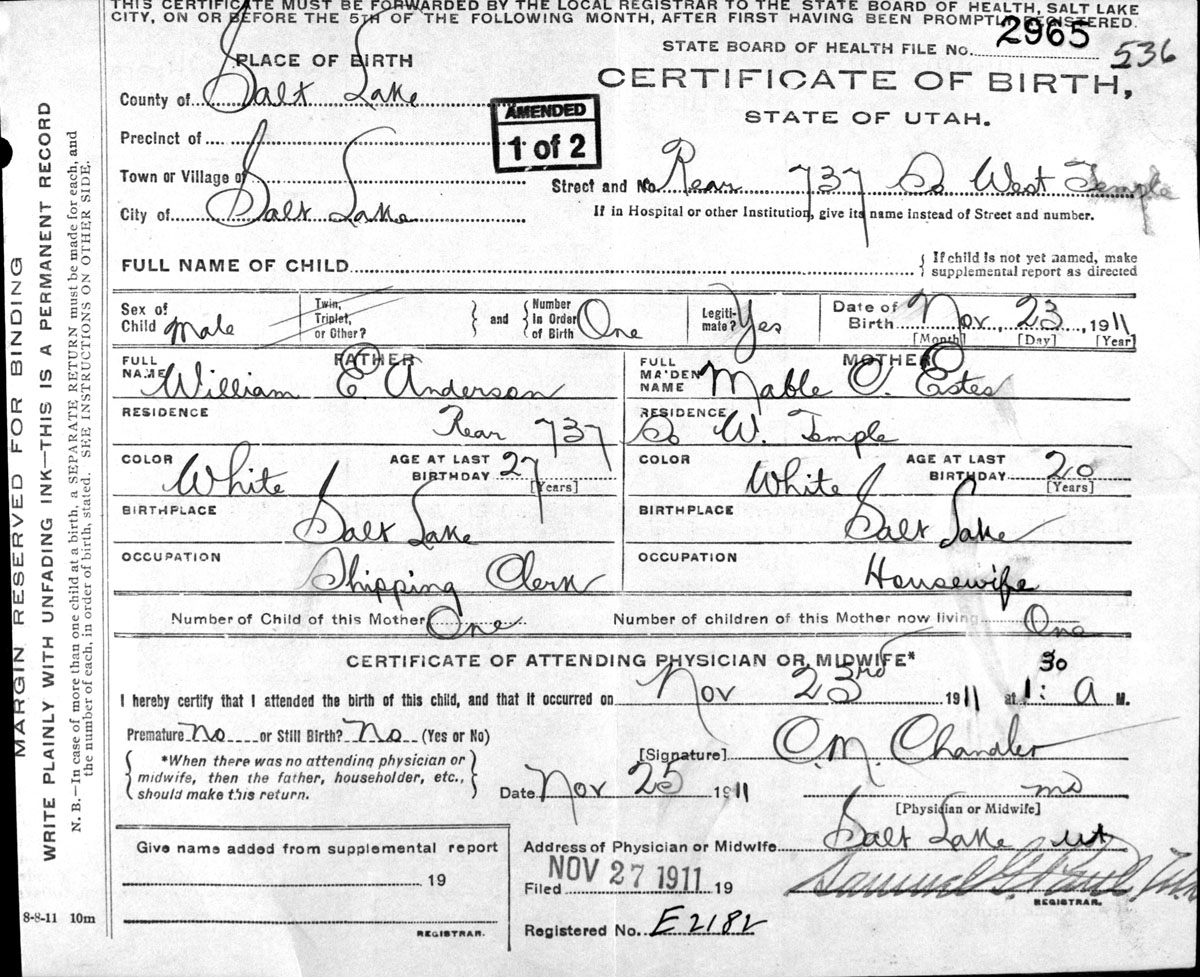 THIS CERTIFICATE MUST BE FORWARDED BY THE LOCAL REGISTRAR TO THE STATE BOARD OF HEALTH, SALT LAKE
CITY, ON OR BEFORE THE 5TH OF THE FOLLOWING MONTH, AFTER FIRST HAVING BEEN PROMPTLY REGISTERED.
PLACE OF BIRTH
STATE BOARD OF HEALTH FILE No. 2965 536
County of Salt Lake
CERTIFICATE OF BIRTH,
STATE OF UTAH.
AMENDED
1 of 2
Precinct of
Town or Village of
Street and No. Rear 737 So West Temple
City of Salt Lake
If in Hospital or other Institution, give its name instead of Street and number.
FULL NAME OF CHILD
{ If child is not yet named, make
supplemental report as directed
Sex of Child Male
Twin, Triplet, or Other?
and
Number In Order of Birth One
Legiti-mate? Yes
Date of Birth Nov, 23, 1911
[Month] [Day] [Year]
FATHER
FULL NAME William E. Anderson
MOTHER
FULL MAIDEN NAME Mable O. Estes
RESIDENCE Rear 737
RESIDENCE So W. Temple
COLOR White
AGE AT LAST BIRTHDAY 27
[Years]
COLOR White
AGE AT LAST BIRTHDAY 20
[Years]
BIRTHPLACE Salt Lake
BIRTHPLACE Salt Lake
OCCUPATION Shipping Clerk
OCCUPATION Housewife
Number of Child of this Mother One
Number of children of this Mother now living One
CERTIFICATE OF ATTENDING PHYSICIAN OR MIDWIFE*
I hereby certify that I attended the birth of this child, and that it occurred on Nov 23rd 1911 at 1:30 A M.
Premature No or Still Birth? No (Yes or No)
*When there was no attending physician or
midwife, then the father, householder, etc.,
should make this return.
[Signature] O. M. Chandler
Date Nov 25 1911
MD
[Physician or Midwife]
Give name added from supplemental report
19
REGISTRAR.
8-8-11 10m
Address of Physician or Midwife Salt Lake Ut
Filed NOV 27 1911 19
REGISTRAR.
Registered No. E2182
MARGIN RESERVED FOR BINDING
WRITE PLAINLY WITH UNFADING INK—THIS IS A PERMANENT RECORD
N. B.—In case of more than one child at a birth, a SEPARATE RETURN must be made for each, and
the number of each, in order of birth, stated. SEE INSTRUCTIONS ON OTHER SIDE.